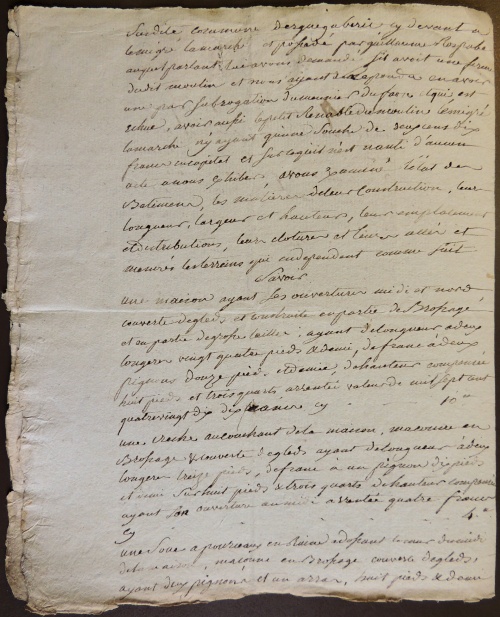 Sudite commune d'erguegaberic cy devant a
lemigré Lamarche et possedé par guillaume Respabe
auquel parlant lui avons demandé s'il avoit une ferme
dudit moulin et nous ayant repondu en avoir
une par subrogation du meunier du faou et qui est
echue, avoir aussi le petit Renable du moulin lemigré
Lamarche n'y ayant qu'une Souche de six cens dix
francs en capital et sur lequel n'est nanti d'aucun
acte a nous exhiber, avons examiné l'état des
Batimens, les matieres de leur construction, leur
longueur, largeur et hauteurs, leur emplacement
et distributions, leurs clotures et leurs allées et
mesurés les terreins qui en dependent comme suit
Savoir
une maison ayant ses ouvertures midi et nord
couverte de gleds et construite en partie de Brossage
et en partie de grosse taille, ayant de longueur a deux
longeres vingt quatre pieds & demi, de franc à deux
pignons douze pieds et demie, de hauteur compensée
huit pieds et trois quarts arrentée valeur de mil sept cent
quatrevingt dix dix francs cy 10 "
une Creche au couchant de la maison, maconne en
Brossage & couverte de gleds ayant de longueur à deux
longeres treize pieds, de franc à un pignon dix pieds
et demi sur huit pieds & trois quarts de hauteur compensée
ayant son ouverture au midi arrentée quatre francs
cy 4 "
une Soue a pourceaux en Ruine adossant le mur du midi
de la maison, maconne en Brossage couverte de gleds,
ayant deux pignons et un arras, huit pieds & demi